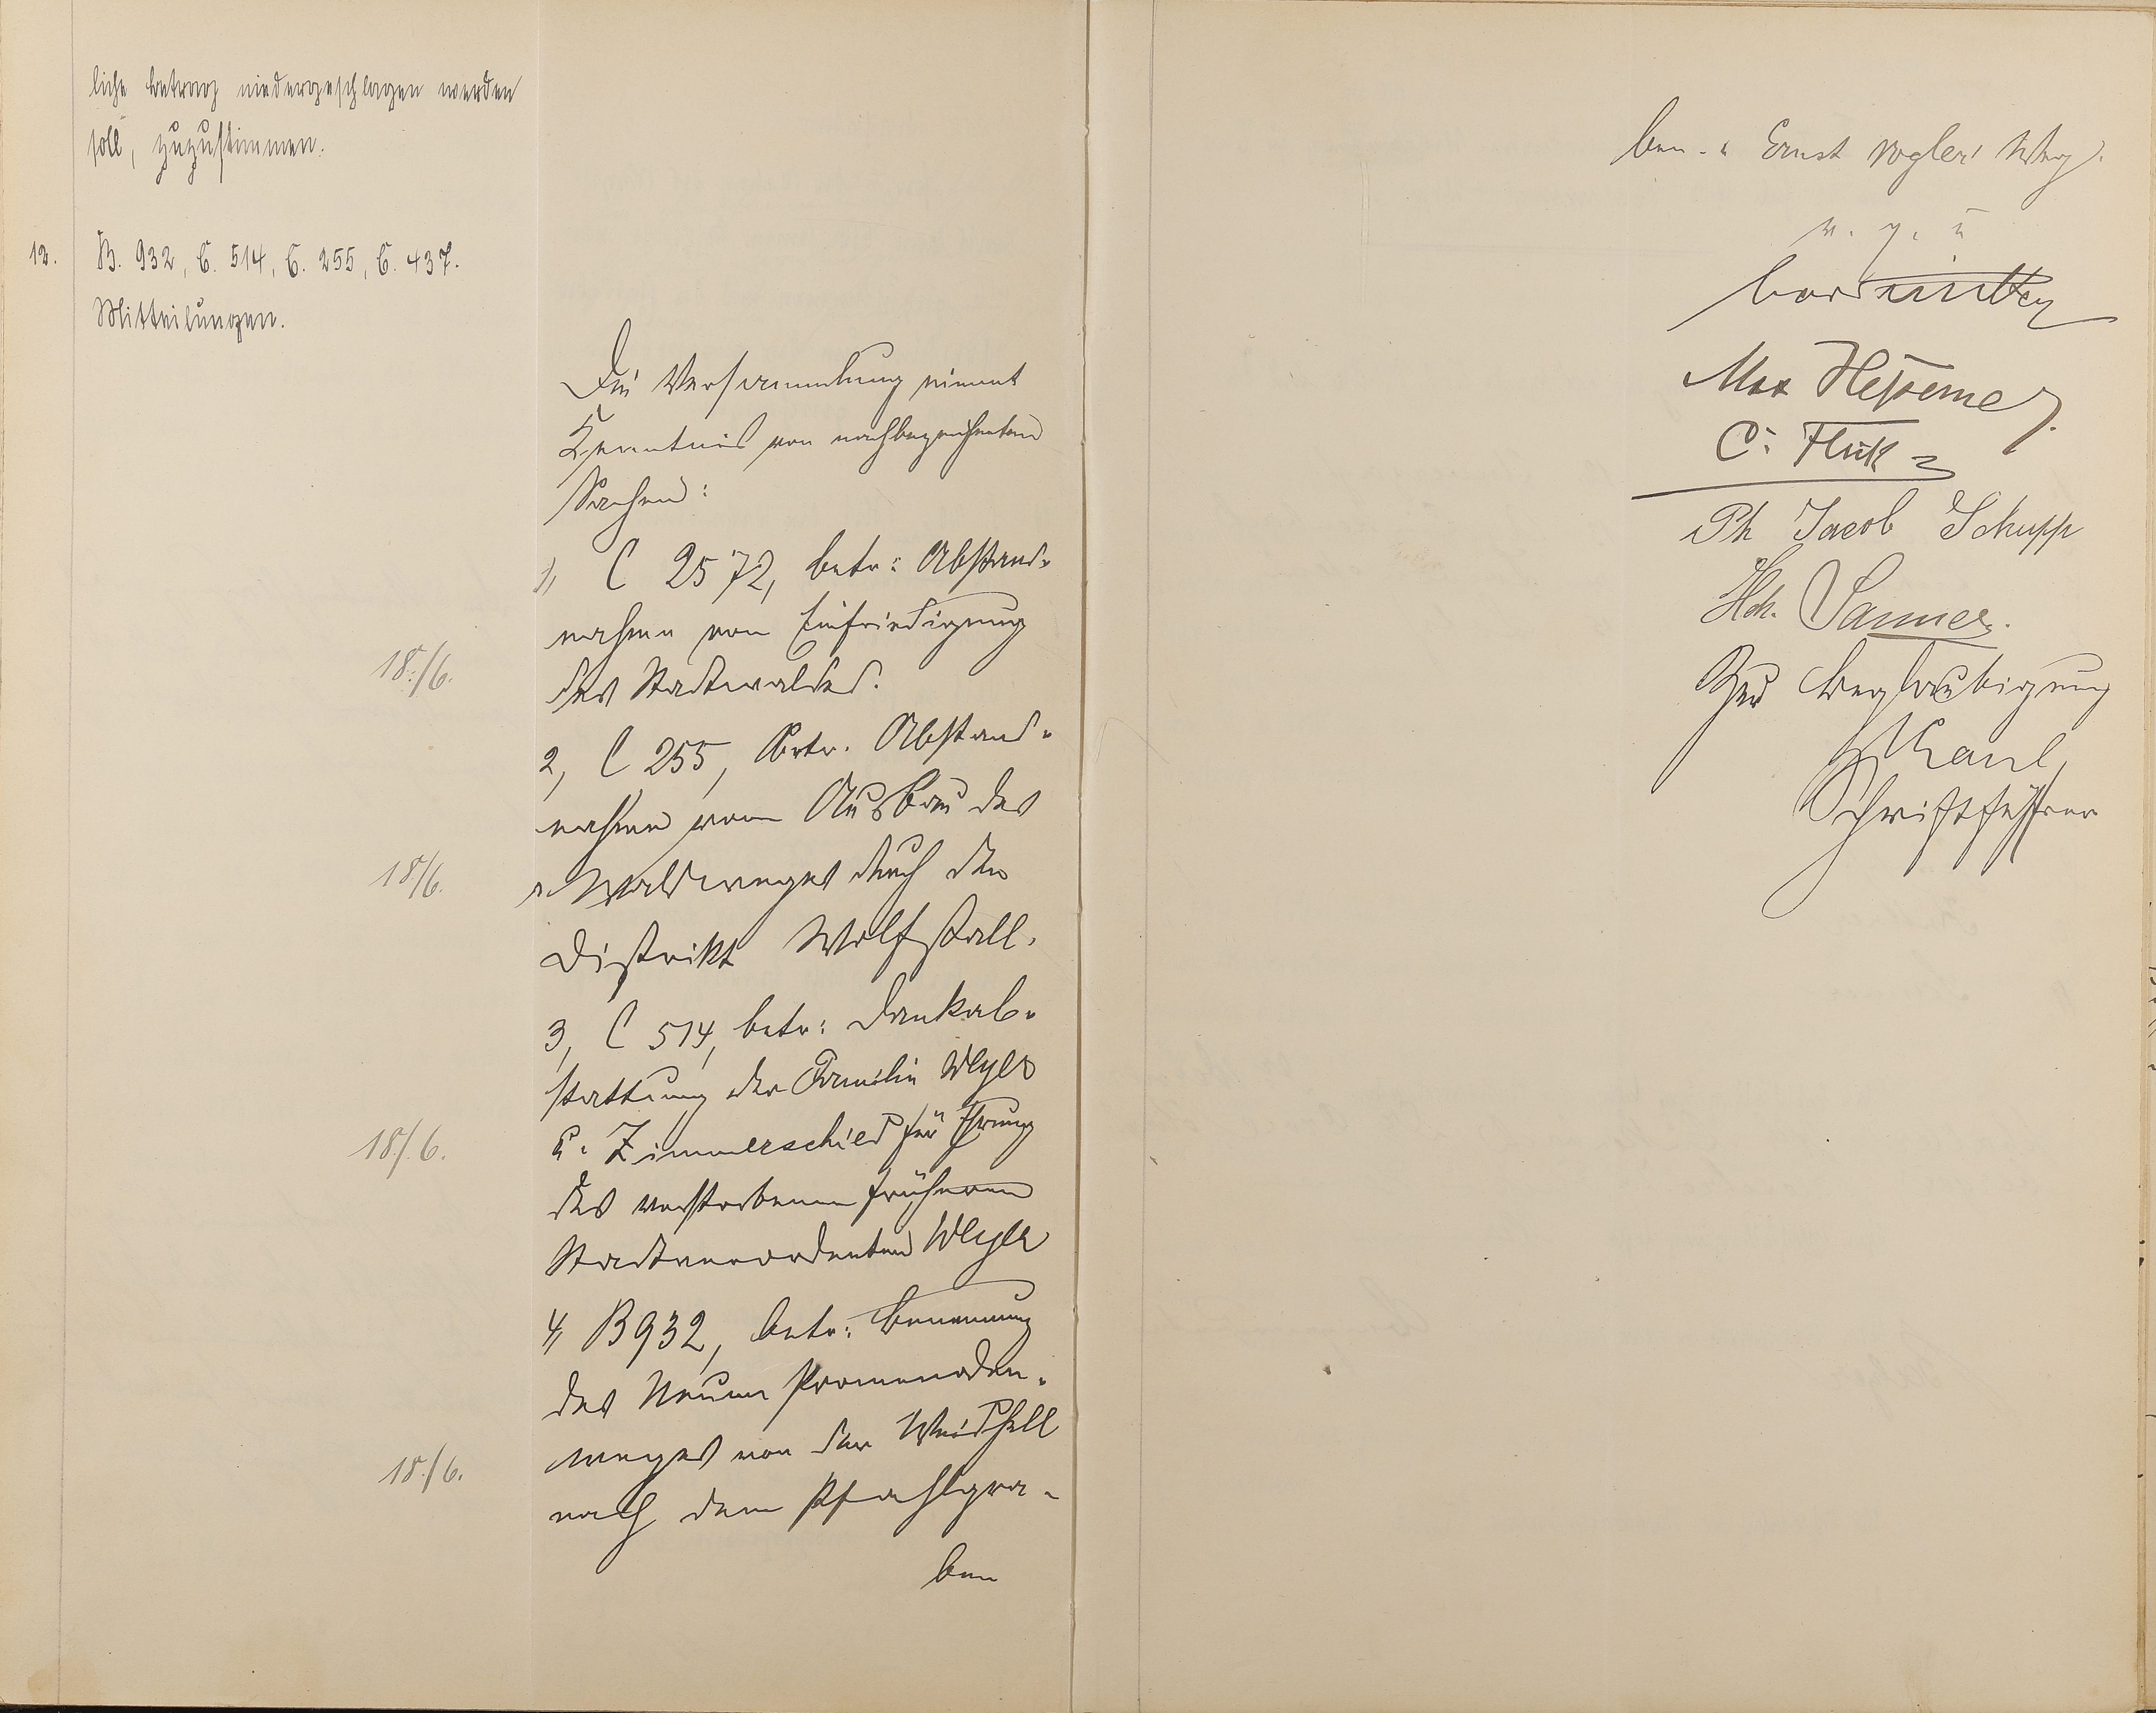 liche Betrag niedergeschlagen werden
soll, zuzustimmen.
12. B. 932, C. 514, C. 255, C. 437.
Mitteilungen.
Die Versammlung nimmt
Kenntnis von nachbezeichneten
Sachen:
1, C 2572, betr: Abstand-
nahme von Einfriedigung
des Stadtwaldes.
18./6.
2, C 255, Betr. Abstand-
nahme vom Ausbau des
Waldweges durch den
18/6.
Distrikt Wolfstall.
3, C 514, betr: Dankab-
stattung der Familie Weyer
u. Zimmerschied für Ehrung
18./6.
des verstorbenen früheren
Stadtverordneten Weyer
4, B 932, betr: Benennung
des Neuen Promenaden-
weges von der Weidhell
18./6.
nach dem Pfahlgra-
ben
ben - " Ernst Vogler" Weg.
v. g. u.
Max Hessemer.
C. Flick
Ph Jacob Schupp
Hch. Sanner.
Zur Beglaubigung
Schriftführer